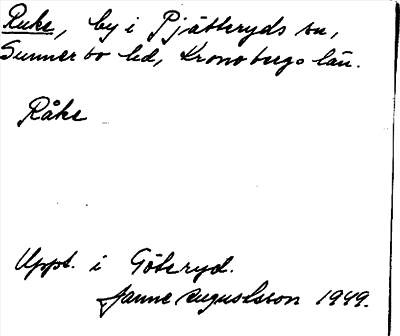 Ruke, by i Pjätteryds sn,
Sunnerbo hd, Kronobergs län.
Råke
Uppt. i Göteryd.
Janne Augustsson 1949.